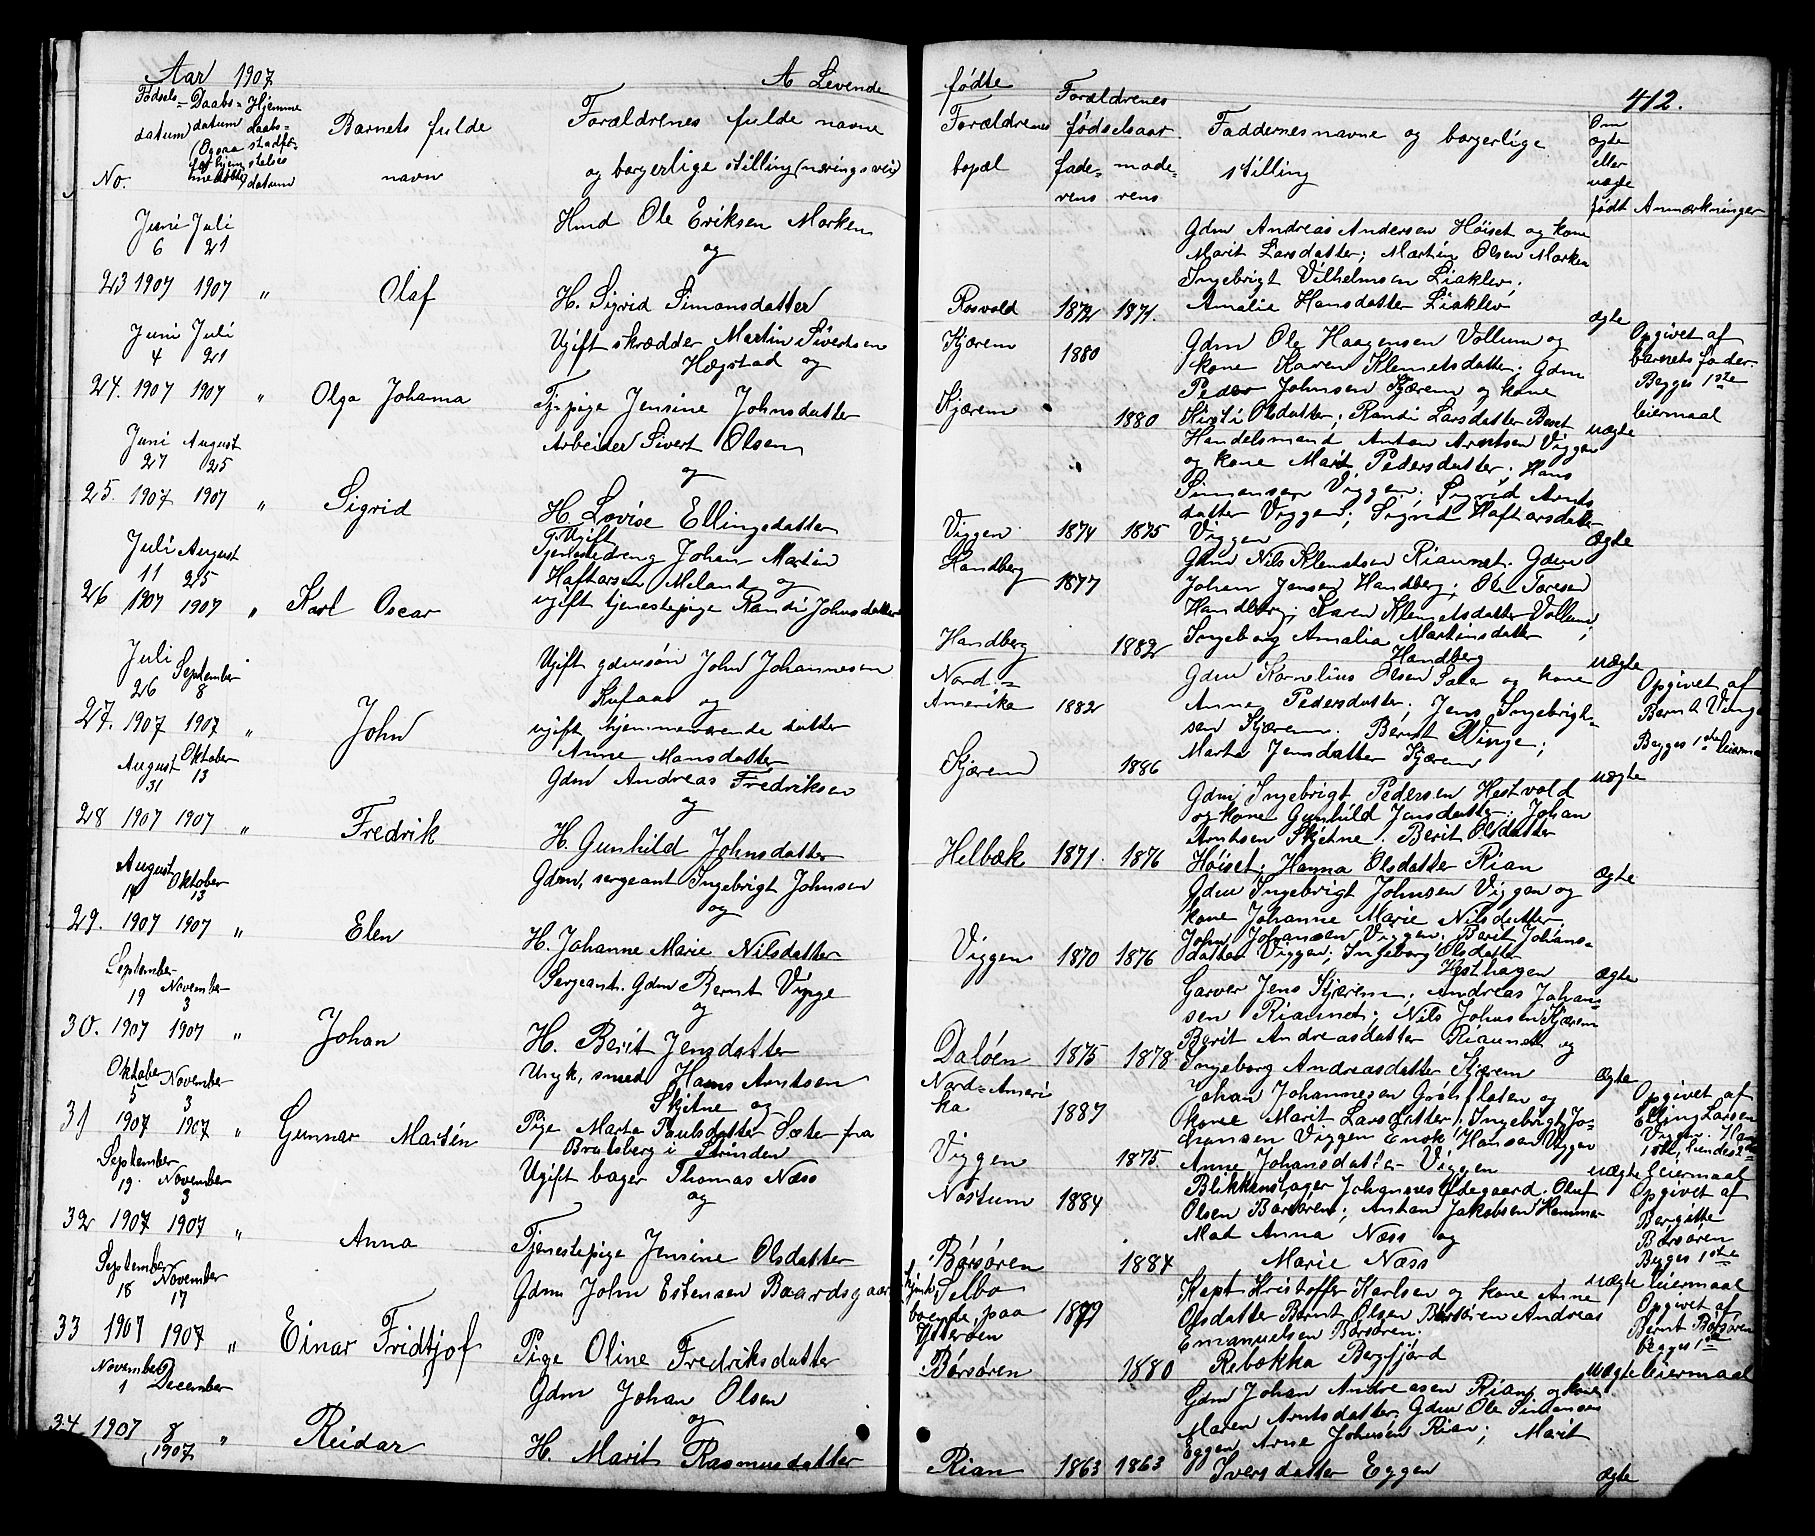 Aar 1907
A Levende
fødte
412.
No.
Fødsels-
datum
Daabs-
datum
(Ogsaa
for hjem
medøbte)
Hjemme
daabs-
stadfæ-
stelses
datum
Barnets fulde
navn
Forældrenes fulde navne
og borgerlige stilling (næringsvei)
Forældrenes
bopæl
Forældrenes
fødselsaar
fade-
rens
mode-
rens
Faddernes navne og borgerlige
stilling
Om
ægte
eller
uægte
født
Anmærkninger
23
Juni 6 1907
Juli 21 1907
"
Olaf
Hmd Ole Eriksen Morken
og
H. Sigrid Simonsdatter
Rosvold
1872
1871.
Gdm Andreas Andersen Höiset og kone
Marit Larsdatter; Martin Olsen Morken
Ingebrigt Vilhelmsen Liaklev;
Amalia Hansdatter Liaklev
ægte
24.
Juni 4 1907
Juli 21 1907
"
Olga Johanna
Ugift skrædder Martin Sivertsen
Hegstad og
Tj. pige Jensine Johnsdatter
Kjærem
1880
Kjærem
1880
Gdm Ole Haagensen Vollum og
kone Karen Klemetsdatter; Gdm
Peder Johnsen Kjærem og kone
Kirsti Olsdatter; Randi Larsdatter Boret
uægte
Opgivet af
barnets fader.
Begges 1ste
leiermaal
25.
Juni 27 1907
August 25 1907
"
Sigrid
Arbeider Sivert Olsen
og
H. Lovise Ellingsdatter
Viggen
1874
1875
Handelsmand Anton Arntsen Viggen
og kone Marit Pedersdatter; Hans
Simonsen Viggen; Sigrid Arnts
datter Viggen; Sigrid Haftorsdatter
Viggen
ægte
26
Juli 11 1907
August 25 1907
"
Karl Oscar
Ugift
Tjenestedreng Johan Martin
Haftorsen Meland og
ugift tjenestepige Randi Johnsdatter
Handberg
1877
Handberg
1882
Gdm Nils Klemetsen Riaunet. Gdm
Johan Jensen Handberg; Ole Toresen
Handberg; Karen Klemetsdatter Vollum;
Ingeborg Amalia Martinsdatter
Handberg
uægte
27.
Juli 26 1907
September 8 1907
"
John
Ugift gdmsøn John Johannesen
Kufaas og
ugift hjemmeværende datter
Anne Hansdatter
Nord-
Amerika
1882
Kjærem
1886
Gdm Kornelius Olsen Sæter og kone
Anne Pedersdatter. Jens Ingebrigt-
sen Kjærem. Bernt Vinge;
Marta Jensdatter Kjærem
uægte
Opgivet af
Bernt Vinge
Begges 1ste leierma
28
August 31 1907
Oktober 13 1907
"
Fredrik
Gdm Andreas Fredriksen
og
H. Gunhild Johnsdatter
Helbæk
1871.
1876
Gdm Ingebrigt Pedersen Hestvold
og kone Gunhild Jensdatter; Johan
Arntsen Skjetne; Berit Olsdatter
Höiset; Hanna Olsdatter Rian
ægte
29.
August 14 1907
Oktober 13 1907
"
Elen
Gdm, sergeant Ingebrigt Johnsen
og
H. Johanne Marie Nilsdatter
Viggen
1870
1876
Gdm Ingebrigt Johnsen Viggen og
kone Johanne Marie Nilsdatter
John Johansen Viggen; Berit Johans-
datter Viggen; Ingeborg Olsdatter
Hesthagen
ægte
30.
September 19 1907
November 3 1907
"
Johan
Sergeant. Gdm Bernt Vinge
og
H. Berit Jensdatter
Daløen
1875
1878.
Garver Jens Kjærem; Andreas Johan-
sen Riaunet; Nils Johnsen Kjærem
Berit Andreasdatter Riaunet og
Ingeborg Andreasdatter Kjærem
ægte
31
Oktober 5 1907
November 3 1907
"
Gunnar Martin
Ungk, smed Hans Arntsen
Skjetne og
Pige Marta Paulsdatter Sæter fra
Bratsberg i Strinden
Nord-Ameri
ka
1887
Viggen
1875
Johan Johannesen Grönfloten og
kone Marit Larsdatter; Ingebrigt Jo-
hansen Viggen Enok Hansen Viggen
Anne Johansdatter Viggen
uægte
Opgivet af
Elling Larsen
Viggen. Hans
1ste, hendes 2det
leiermaal
32
September 19. 1907
November 3 1907
"
Anna
Ugift bager Thomas Næss
og
Tjenestepige Jensine Olsdatter
Nostum
1884
Börsören
1884
Blikkenslager Johannes Ødegaard. Oluf
Olsen Börsören; Anton Jakobsen Hammer
Mat Anna Næss og
Marie Næss
uægte
Opgivet af
Bergitte
Börsören
Begges 1ste
leiermaal
33
September 18 1907
November 17 1907
"
Einar Fridtjof
Gdm John Estensen Baardsgaard
Pige Oline Fredriksdatter
Selbo
boende paa
Ytterøen
1879
Börsören
1880
Kapt Kristoffer Karlsen og kone Anne
Olsdatter Bernt Olsen Börsören Andreas
Emanuelsen Börsören;
Rebekka Bergfjord
uægte
Opgivet af
Bernt Börsören
begges 1ste
leiermaal
34
November 1 1907
December 8 1907
"
Reidar
Gdm Johan Olsen
og
H. Marit Rasmusdatter
Rian
1863
1863
Gdm Johan Andreasen Rian og kone
Maren Arntsdatter. Gdm Ole Simonsen
Eggen Arne Johnsen Rian; Marit
Iversdatter Eggen
ægte